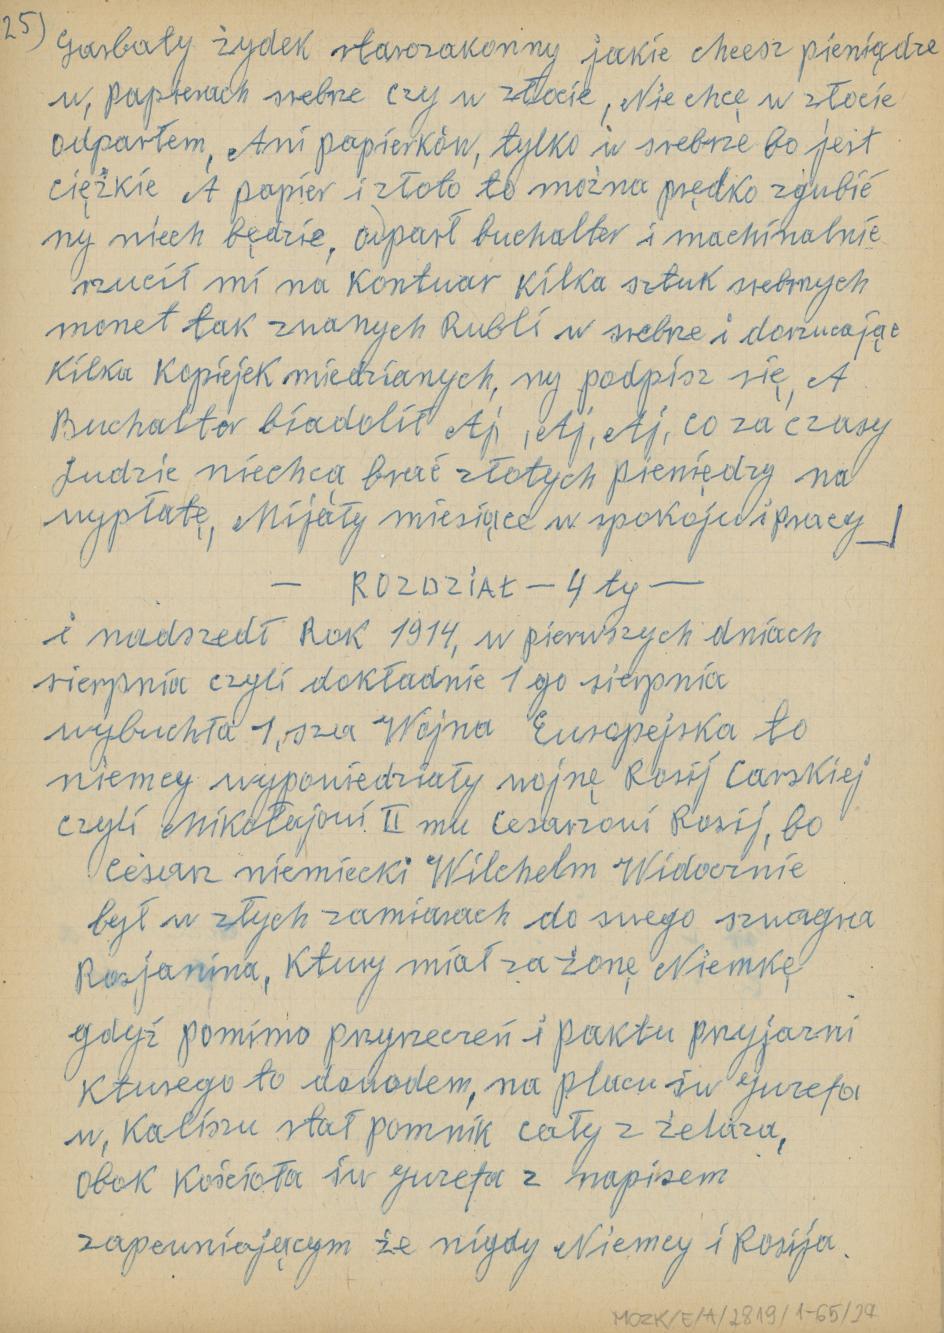 25)
Garbaty żydek starozakonny jakie chcesz pieniądze
w, papierach srebrze czy w złocie, Nie chcę w złocie
odparłem, Ani papierków, tylko w srebrze bo jest
ciężkie A papier i złoto to można prędko zgubić
ny niech będzie, odparł buchalter i machinalnie
rzucił mi na kontuar kilka sztuk srebrnych
monet tak znanych Rubli w srebrze i dorzucając
kilka kopiejek miedzianych, ny podpisz się, A
Buchalter biadolił Aj, Aj, Aj, co za czasy
ludzie niechcą brać złotych pieniędzy na
wypłatę, Mijały miesiące w spokoju i pracy
— ROZDZIAŁ — 4 ty —
i nadszedł Rok 1914, w pierwszych dniach
sierpnia czyli dokładnie 1 go sierpnia
wybuchła 1, sza Wojna Europejska to
niemcy wypowiedziały wojnę Rosij Carskiej
czyli Mikołajowi II mu Cesarzowi Rosij, bo
Cesarz niemiecki Wilchelm Widocznie
był w złych zamiarach do swego szwagra
Rosjanina, Ktury miał za żonę Niemkę
gdyż pomimo przyrzeczeń i paktu przyjazni
Kturego to dowodem, na placu św Juzefa
w, Kaliszu stał pomnik cały z żelaza,
obok Kościoła św Juzefa z napisem
zapewniającym że nigdy Niemcy i Rosija.
MOZK/E/A/2819/1-65/27